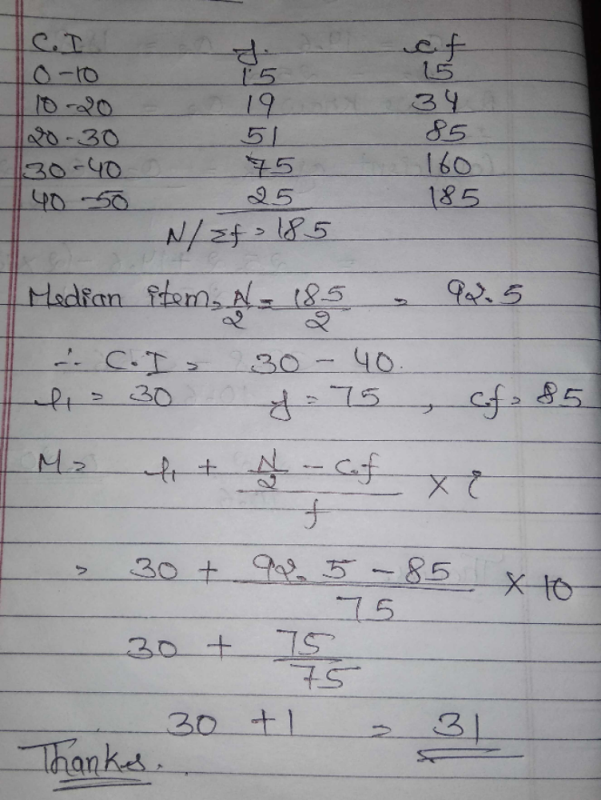 C.I f. cf
0-10 15 15
10-20 19 34
20-30 51 85
30-40 75 160
40-50 25 185
N/Σf = 185
Median item = N/2 = 185/2 = 92.5
∴ C.I = 30 - 40.
l₁ = 30 f = 75 , Cf = 85
M = l₁ + (N/2 - C.f)/f × i
= 30 + (92.5 - 85)/75 × 10
30 + 75/75
30 + 1 = 31
Thanks.